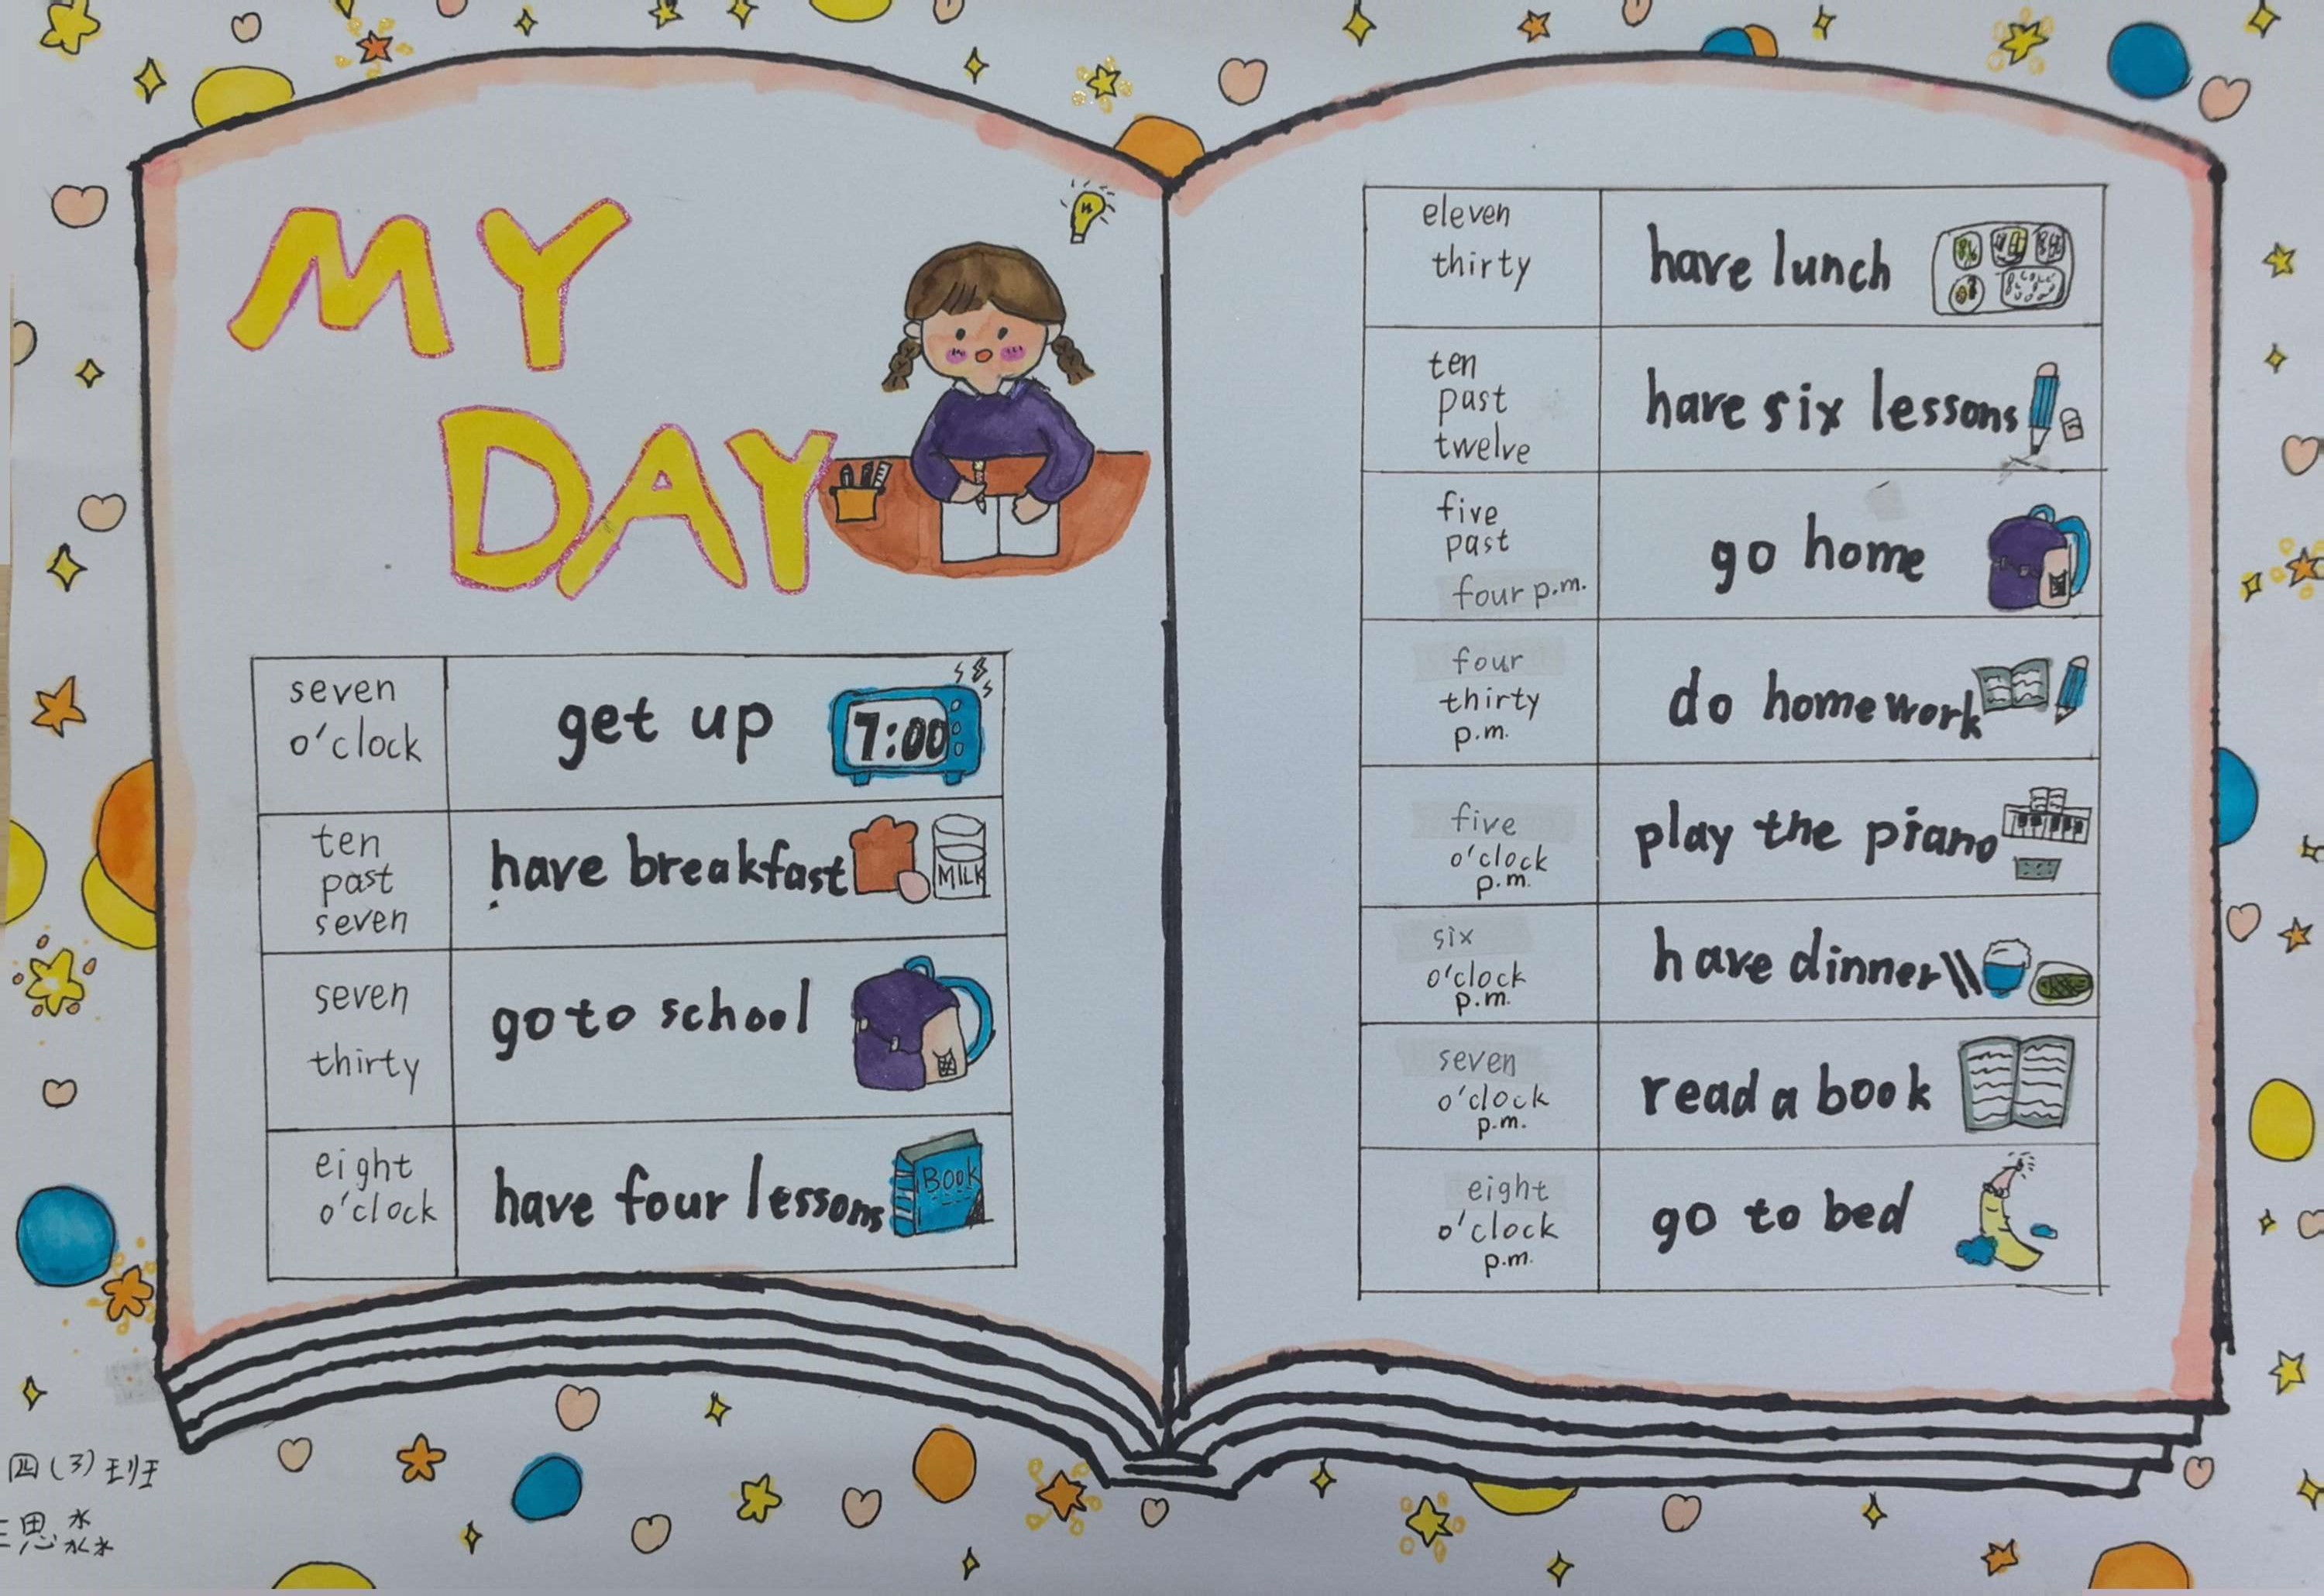 MY
DAY
seven
o'clock
get up
7:00
ten
past
seven
have breakfast
MILK
seven
thirty
go to school
eight
o'clock
have four lessons
BOOK
eleven
thirty
have lunch
ten
past
twelve
have six lessons
five
past
four p.m.
go home
four
thirty
p.m.
do homework
five
o'clock
p.m.
play the piano
six
o'clock
p.m.
have dinner
seven
o'clock
p.m.
read a book
eight
o'clock
p.m.
go to bed
四(3)班
思淼